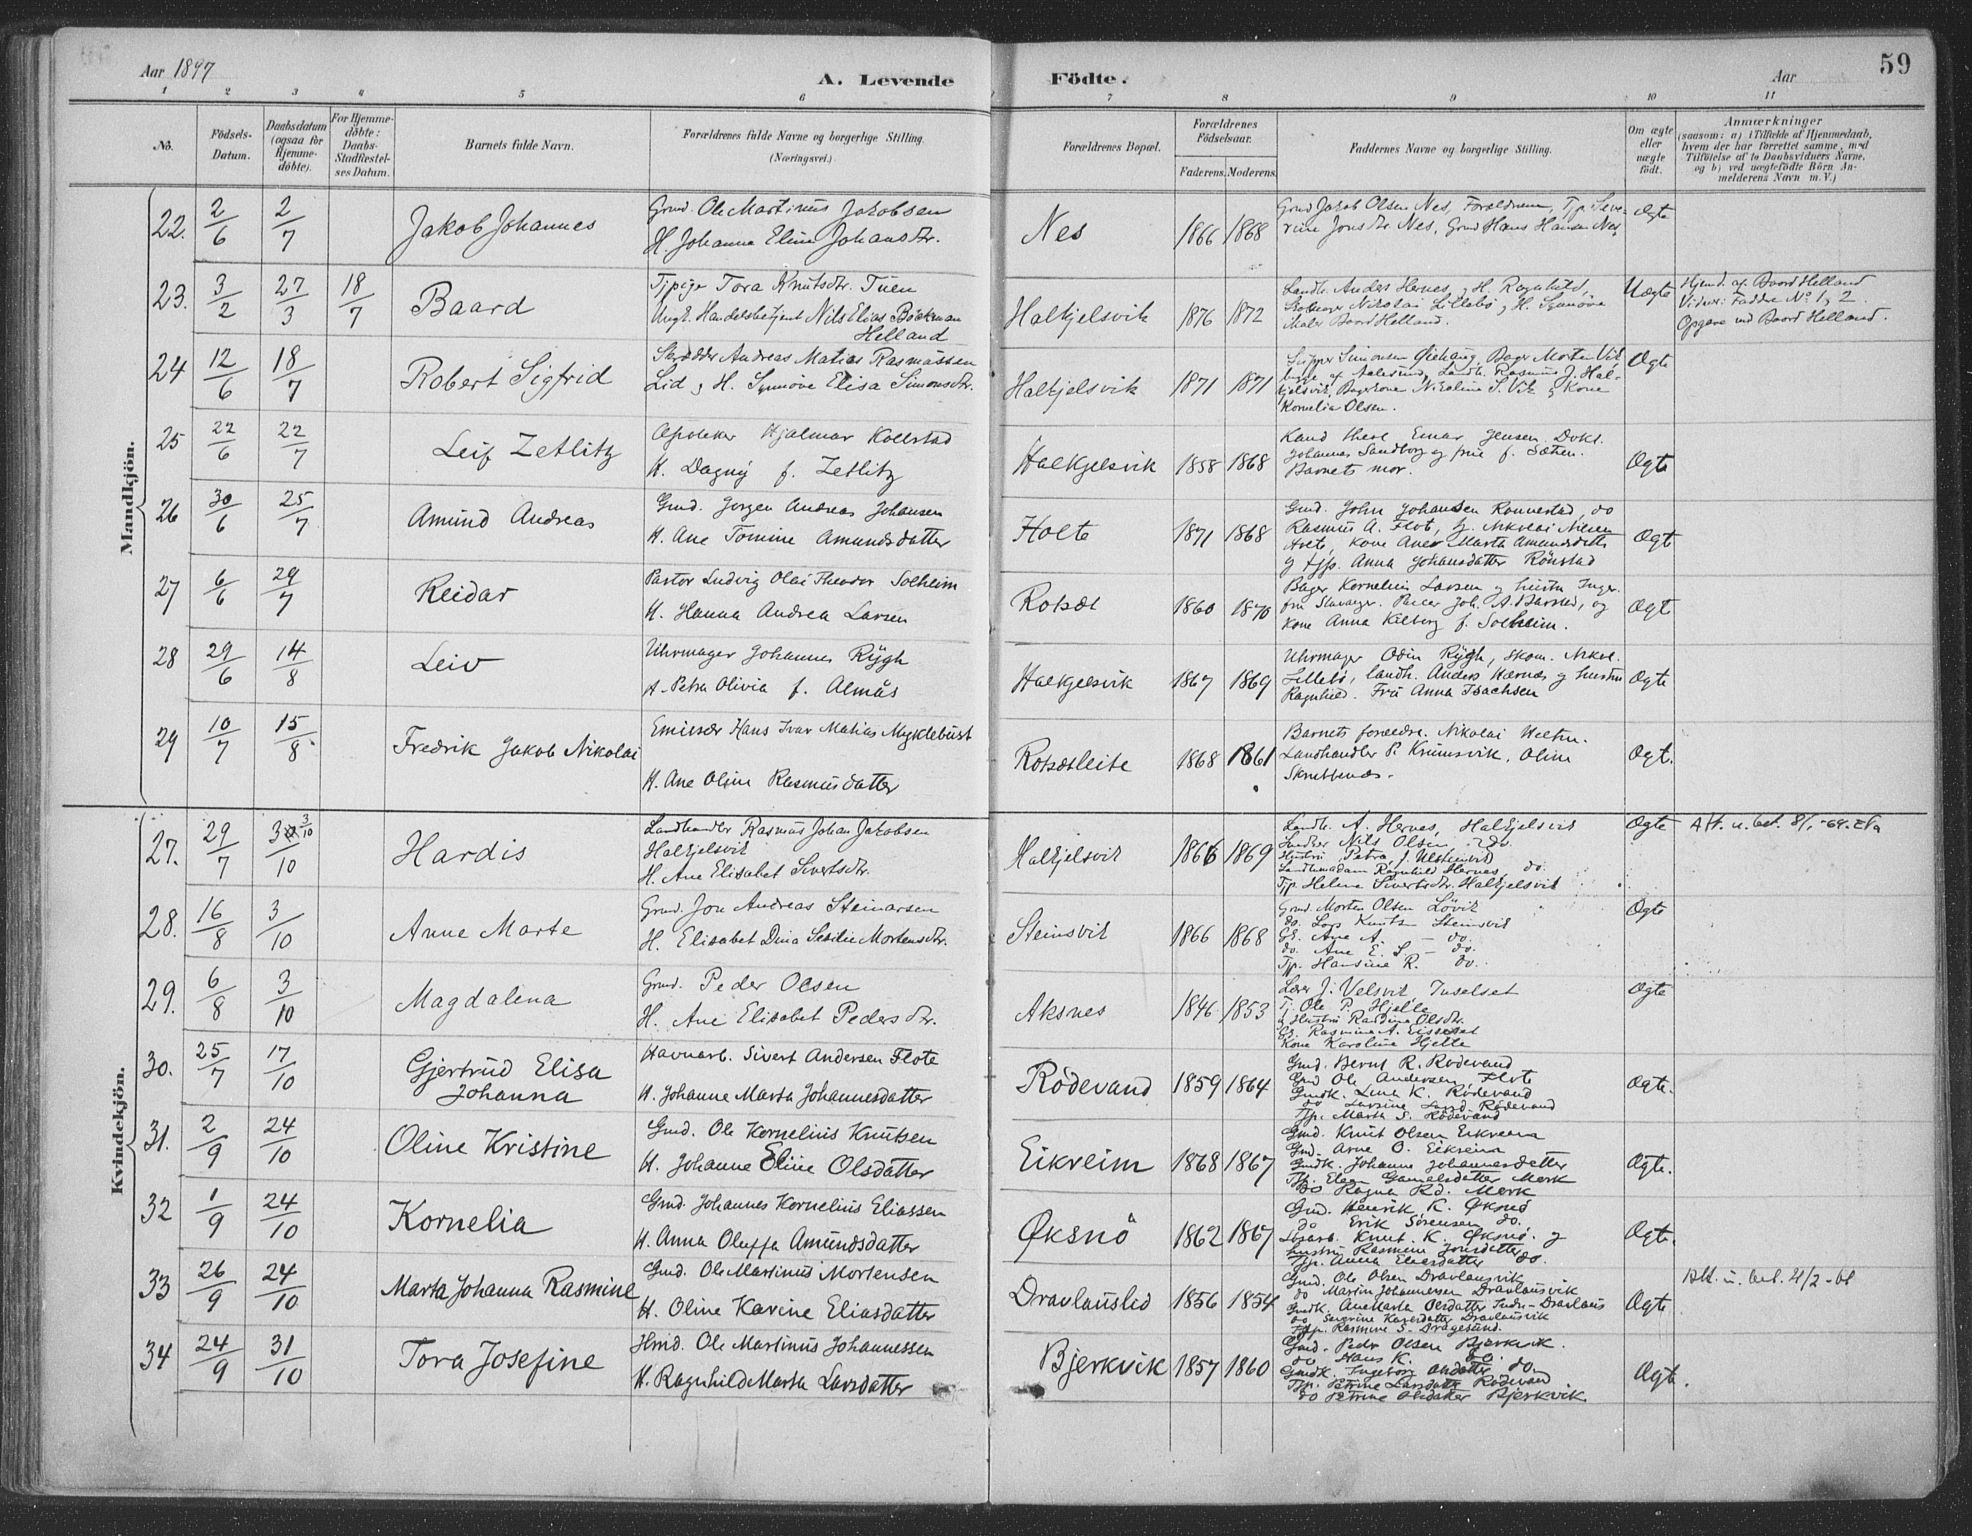 Aar 1897
A. Levende Födte.
Aar
59
1 2 3 4 5 6 7 8 9 10 11
No.
Födsels-Datum.
Daabsdatum (ogsaa för Hjemme-döbte).
For Hjemme-döbte: Daabs-Stadfæstel-ses Datum.
Barnets fulde Navn.
Forældrenes fulde Navne og borgerlige Stilling. (Næringsvei.)
Forældrenes Bopæl.
Forældrenes Födselsaar.
Faderens. Moderens.
Faddernes Navne og borgerlige Stilling.
Om ægte eller uægte födt.
Anmærkninger
(saasom: a) i Tilfælde af Hjemmedaab, hvem der har forrettet samme, med Tilföielse af to Daabsvidners Navne, og b) ved uægtefödte Börn An-melderens Navn m. V.)
Mandkjön.
22. 2/6 2/7 Jakob Johannes
Grmd. Ole Martinus Jakobsen
H. Johanna Eline Johansdtr.
Nes 1866 1868
Grmd Jakob Olsen Nes, Forældrene, Tjp. Seve-
rine Jonsdtr Nes, Grmd Hans Hansen Nes
Ægte
23. 3/2 27/3 18/7 Baard
Tjpige Tora Knutsdtr. Tuen
Ungk. Handelsbetjent Nils Elias Böckman
Helland
Halkjelsvik 1876 1872
Landh. Anders Hernes, og H. Ragnhild,
Nikolai Lillebö og H. Synnöve
Maler Baard Helland.
Uægte
Hjemd. af Baard Helland
Vidner: Faddre No 1 og 2.
Opgave ved Baard Helland.
24 12/6 18/7 Robert Sigfrid
Skrædder Andreas Matias Rasmussen
Lid og H. Synnöve Elisa Simonsdtr.
Halkjelsvik 1871 1871
Skipper Simonsen Öiehaug, Bager Morten Vik
begge af Aalesund, Landh. Rasmus J. Hal-
kjelsvik, Bagerkone Nikoline S. Vik og Kone
Kornelia Olsen.
Ægte
25 22/6 22/7 Leif Zetlitz
Apoteker Hjalmar Kollstad
H. Dagny f. Zetlitz
Halkjelsvik 1858 1868
Kand theol Einar Jensen. Dokt.
Johannes Sandborg og frue f. Sæthen.
Barnets mor.
Ægte
26 30/6 25/7 Amund Andreas
Grmd. Jörgen Andreas Johansen
H. Ane Tomine Amundsdatter
Holte 1871 1868
Gmd. John Johansen Rönnestad, do
Rasmus A. Flot, G. Nikolai Nilsen
Holte, Kone Ane Marta Amundsdtr
og tjp. Anna Johansdatter Rönstad
Ægt
27 6/6 29/7 Reidar
Pastor Ludvig Olai Theodor Solheim
H. Hanna Andrea Larsen
Rotsæt 1860 1870
Bager Kornelius Larsen og hustru Inger
fra Stavanger. Joh. A. Barstad, og
Kone Anna Kilborg f. Solheim.
Ægte
28 29/6 14/8 Leiv
Uhrmager Johannes Rygh
H. Petra Olivia f. Almås
Halkjelsvik 1867 1869
Uhrmager Odin Rygh, skom. Nikol.
Lillebö, landh. Anders Hærnæs og hustru
Ragnhild. Frü Anna Isachsen
Ægte
29 10/7 15/8 Fredrik Jakob Nikolai
Emissær Hans Ivar Matias Myklebust
H. Ane Oline Rasmusdatter
Rotsætleite 1868 1861
Barnets forældre. Nikolai Welten.
Landhandler P. Krumsvik, Oline
Skrubbenæs.
Ægt.
Kvindekjön.
27. 29/7 3/10 Hardis
Landhandler Rasmus Johan Jakobsen
Halkjelsvik
H. Ane Elisabet Sivertsdtr.
Halkjelsvik 1866 1869
Landh. A. Hernes, Halkjelsvik
Nils Olsen, do.
Hustru Petra J. Ulsteinvik
Landhmadam Ragnhild Hernes, do.
Tjp. Helene Sivertsdtr. Halkjelsvik
Ægte
Att. u. bet. 8/1-64.
28. 16/8 3/10 Anne Marte
Grmd. Jon Andreas Steinarsen
H. Elisabet Dina Sesilie Mortensdtr.
Steinsvik 1866 1868
Grmd. Morten Olsen Lövik
do. Lars Knuts. Steinsvik
Gk. Ane A. — do.
do. Ane E. S. — do.
Tjp. Hansine R. do.
Ægte
29. 6/8 3/10 Magdalena
Grmd. Peder Olsen
H. Ane Elisabet Pedersdtr.
Aksnes 1846 1853
Lærer J. Velsvik Tuselset
Tj. Ole P. Hjelle
og Hustru Rasmine Olsdtr.
Gk. Rasmine A.
Kone Karoline Hjelle
Ægte
30. 25/7 17/10 Gjertrud Elisa
Johanna
Havnarb. Sivert Andersen Flote
H. Johanne Marta Johannesdatter
Rödevand 1859 1864
Gmd. Bernt R. Rödevand
Gmd Ole Andersen Flote
Gmdk. Lina K. Rödevand
do Larsine Larsd. Rödevand
Tjp. Marta S. Rödevand
Ægte.
31. 2/9 24/10 Oline Kristine
Gmd. Ole Kornelius Knutsen
H. Johanne Eline Olsdatter
Eikreim 1868 1867
Gmd. Knut Olsen Eikreim
Gmd. Arne O. Eikreim
Gmdk. Johanne Johannesdatter
Tjp. Elen Gamalsdatter Mork
do Ragna Rd. Mork
Ægte.
32 1/9 24/10 Kornelia
Gmd. Johannes Kornelius Eliassen
H. Anna Oluffa Amundsdatter
Öksnö 1862 1867
Gmd. Henrik K. Öksnö
do Erik Sörensen do.
Lösarb. Knut. K. Öksnö. og
hustru Rasmine Jonsdatter
Tjp. Anna Eliasdatter do.
Ægte.
33 26/9 24/10 Marta Johanna Rasmine
Gmd. Ole Martinus Mortensen
H. Oline Karine Eliasdatter
Dravlauslid 1856 1854
Gmd. Ole Olsen Dravlausvik
do Martin Johannessen Dravlausvik
Gmdk. Ane Marta Olsdatter Indre-Dravlaus
do Severine Dravlausvik
Tjp. Rasmine S. Dragesund.
Ægte
Att. u. bet. 4/2-61
34 24/9 31/10 Tora Josefine
Hmd. Ole Martinus Johannessen
H. Ragnhild Marta Larsdatter
Bjerkvik 1857 1860
Gmd. Peder Olsen Bjerkvik.
do Hans K. do.
Gmdk. Ingeborg Olsdatter do
Tjp. Petrine Larsdatter Rödevand
do Petrine Olsdatter Bjerkvik.
Ægte.